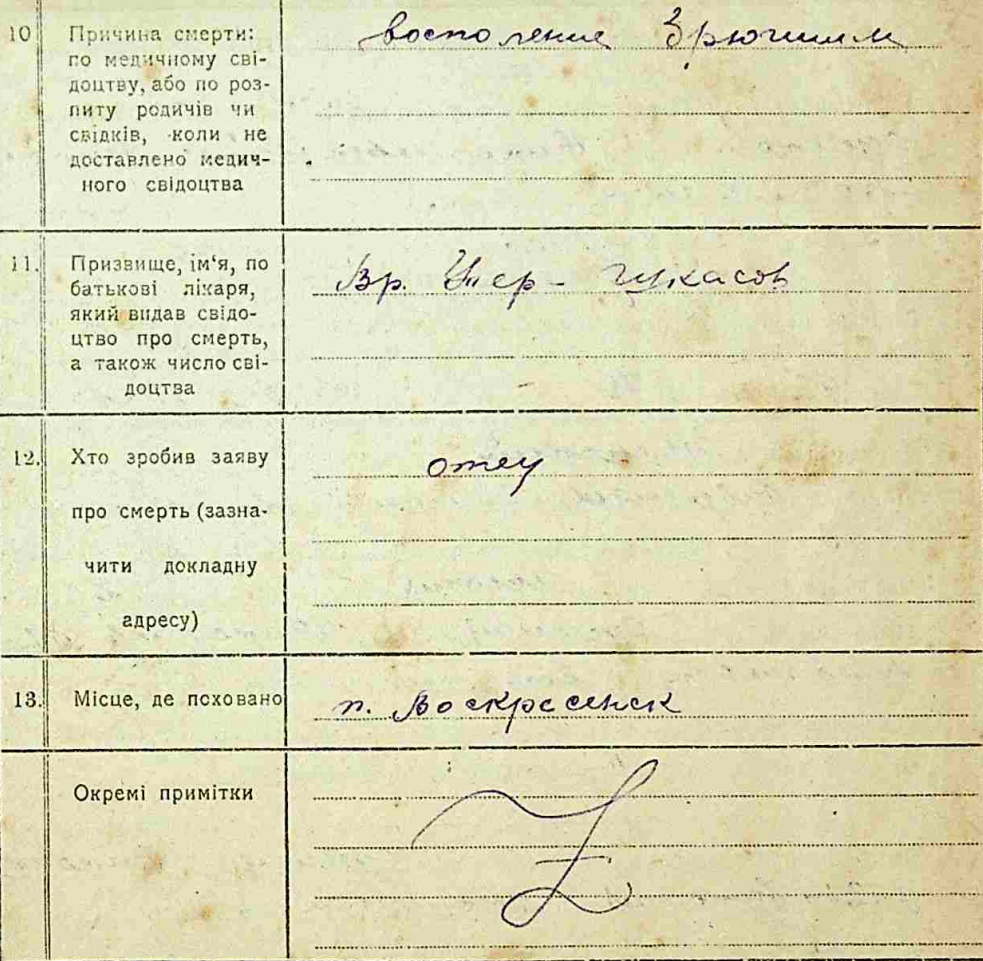 10 Причина смерти:
по медичному сві-
доцтву, або по роз-
питу родичів чи
свідків, коли не
доставлено медич-
ного свідоцтва
восполение Зрюшини
11. Призвище, ім‘я, по
батькові лікаря,
який видав свідо-
цтво про смерть,
а також число сві-
доцтва
Вр. Тер - Гукасов
12. Хто зробив заяву
про смерть (зазна-
чити докладну
адресу)
отец
13. Місце, де поховано
п. Воскресенск
Окремі примітки